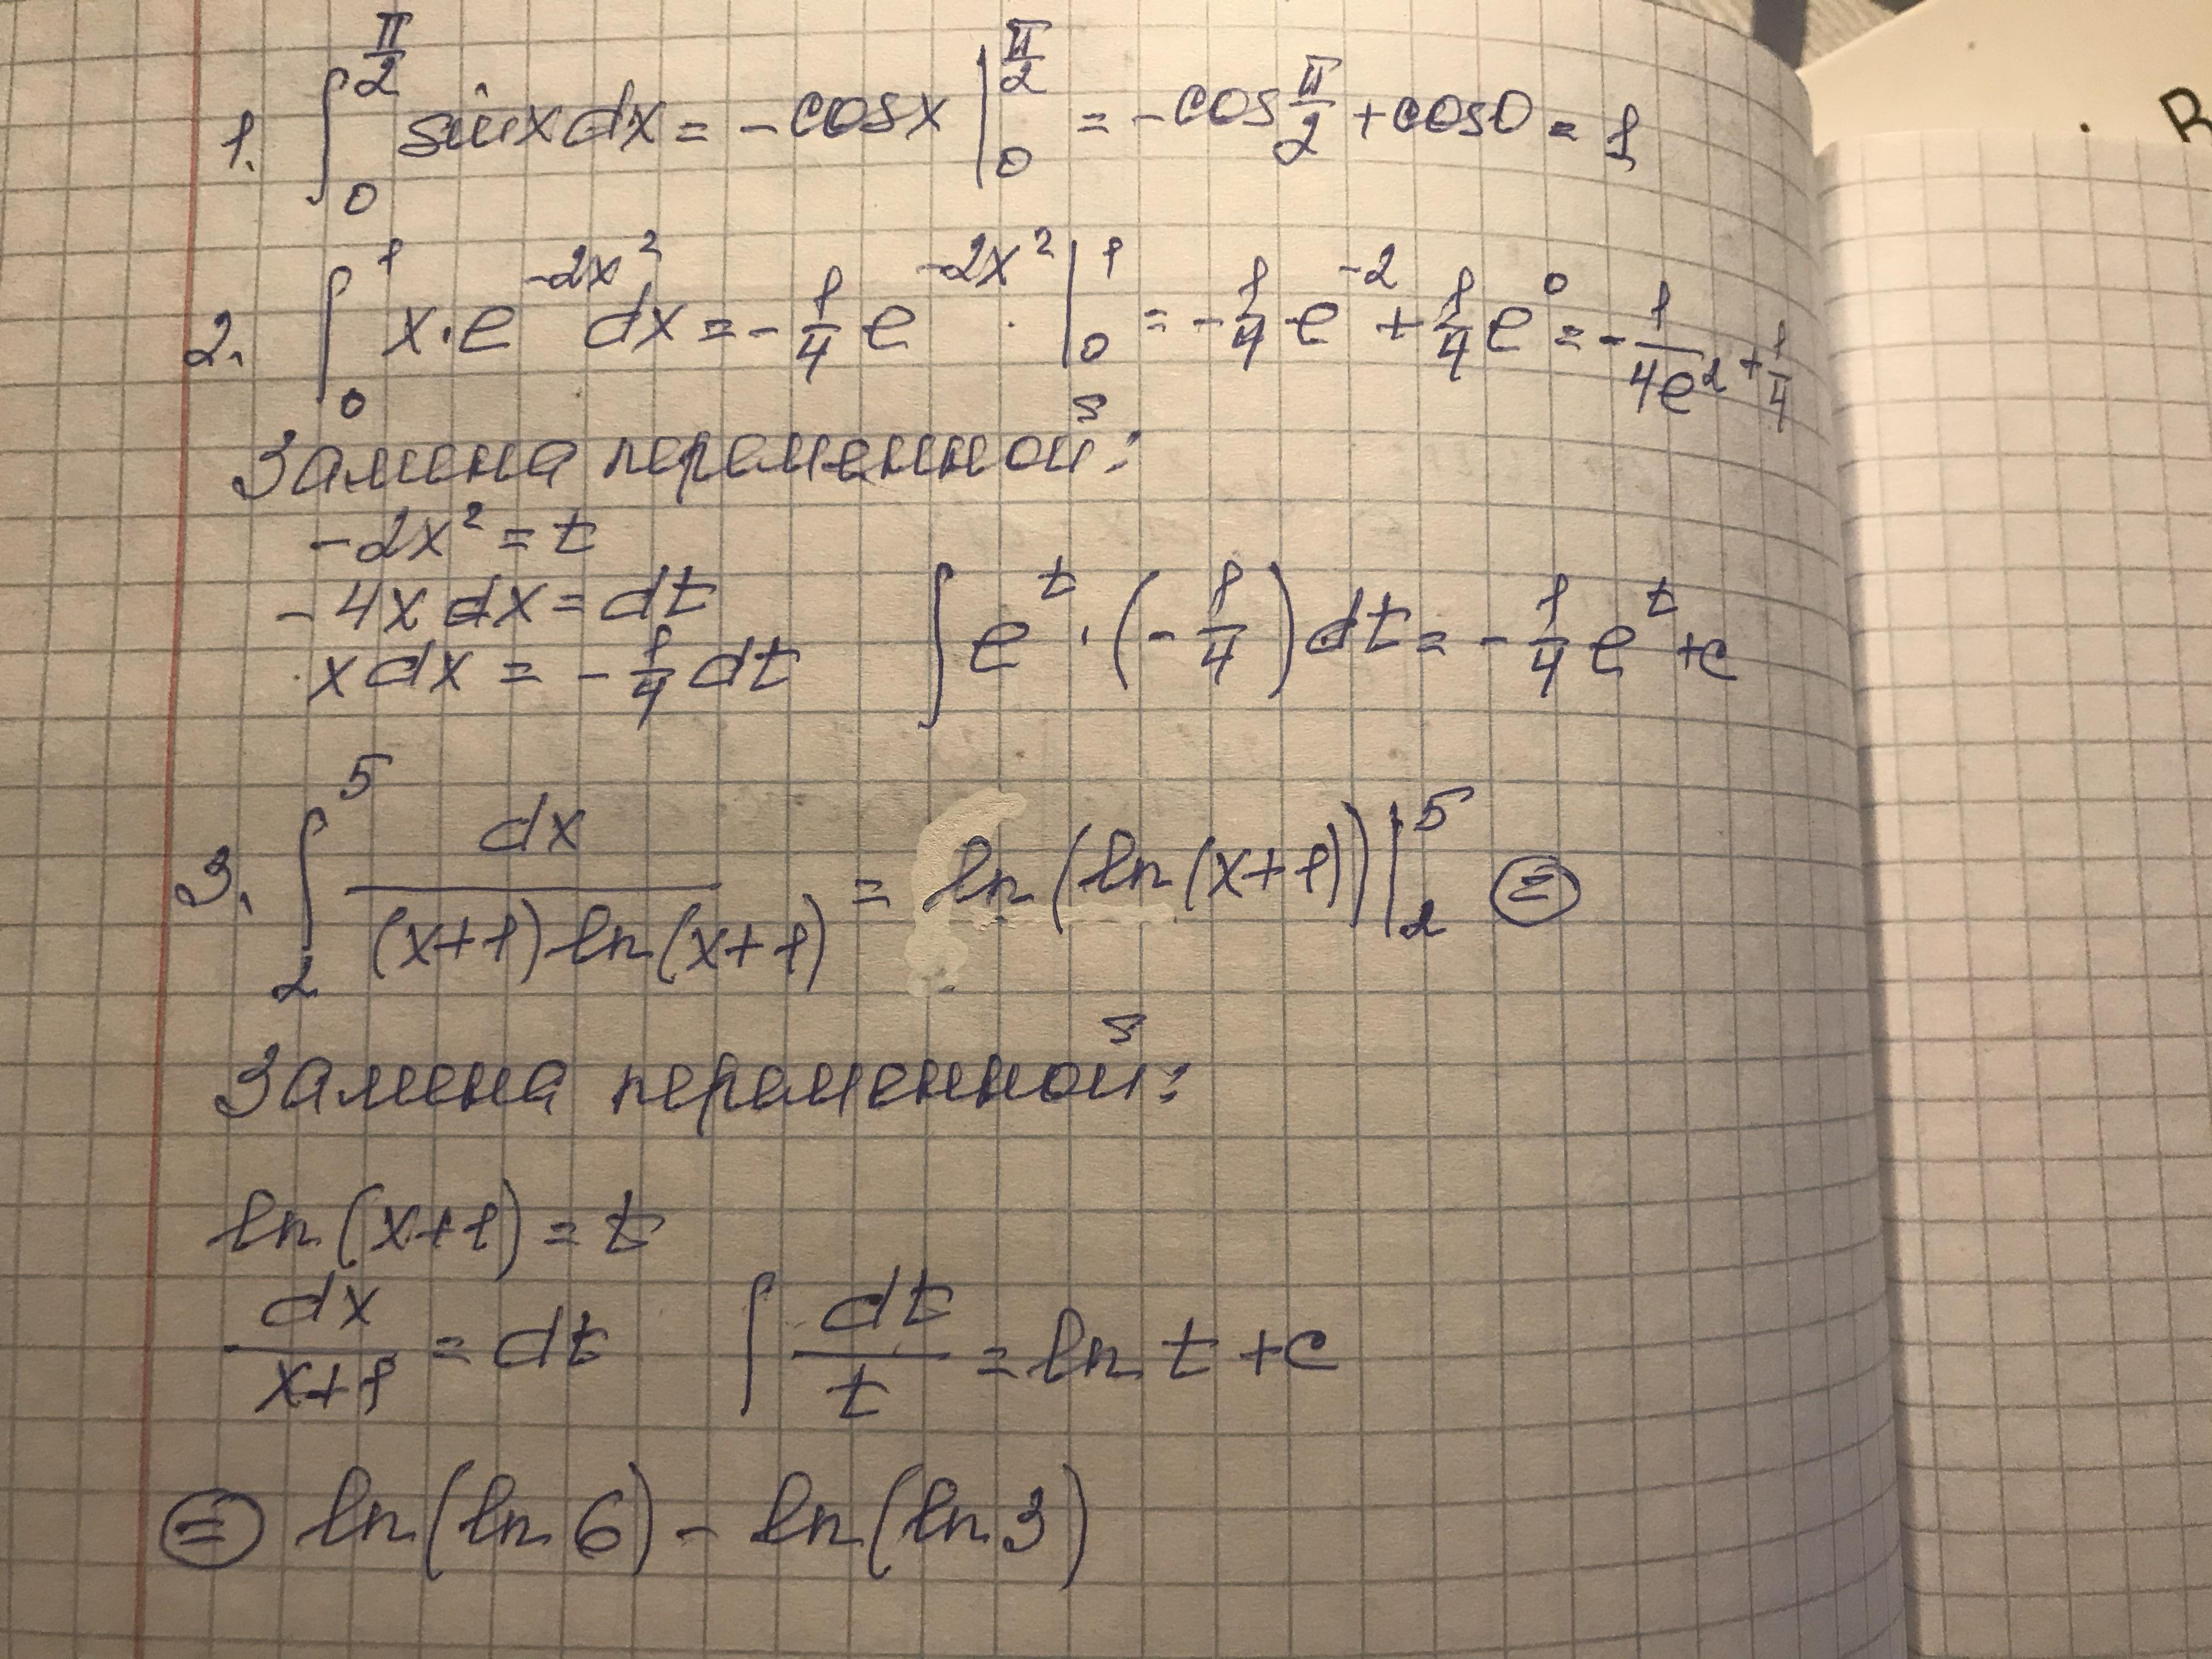 1. ∫₀^(π/2) sin x dx = -cos x |₀^(π/2) = -cos π/2 + cos 0 = 1
2. ∫₀^1 x·e^(-2x²) dx = -1/4 e^(-2x²) |₀^1 = -1/4 e^(-2) + 1/4 e^0 = -1/(4e²) + 1/4
Замена переменной:
-2x² = t
-4x dx = dt
x dx = -1/4 dt ∫ e^t · (-1/4) dt = -1/4 e^t + c
3. ∫₂^5 dx/((x+1) ln(x+1)) = ln(ln(x+1)) |₂^5 ⊜
Замена переменной:
ln(x+1) = t
dx/(x+1) = dt ∫ dt/t = ln t + c
⊜ ln(ln 6) - ln(ln 3)
R